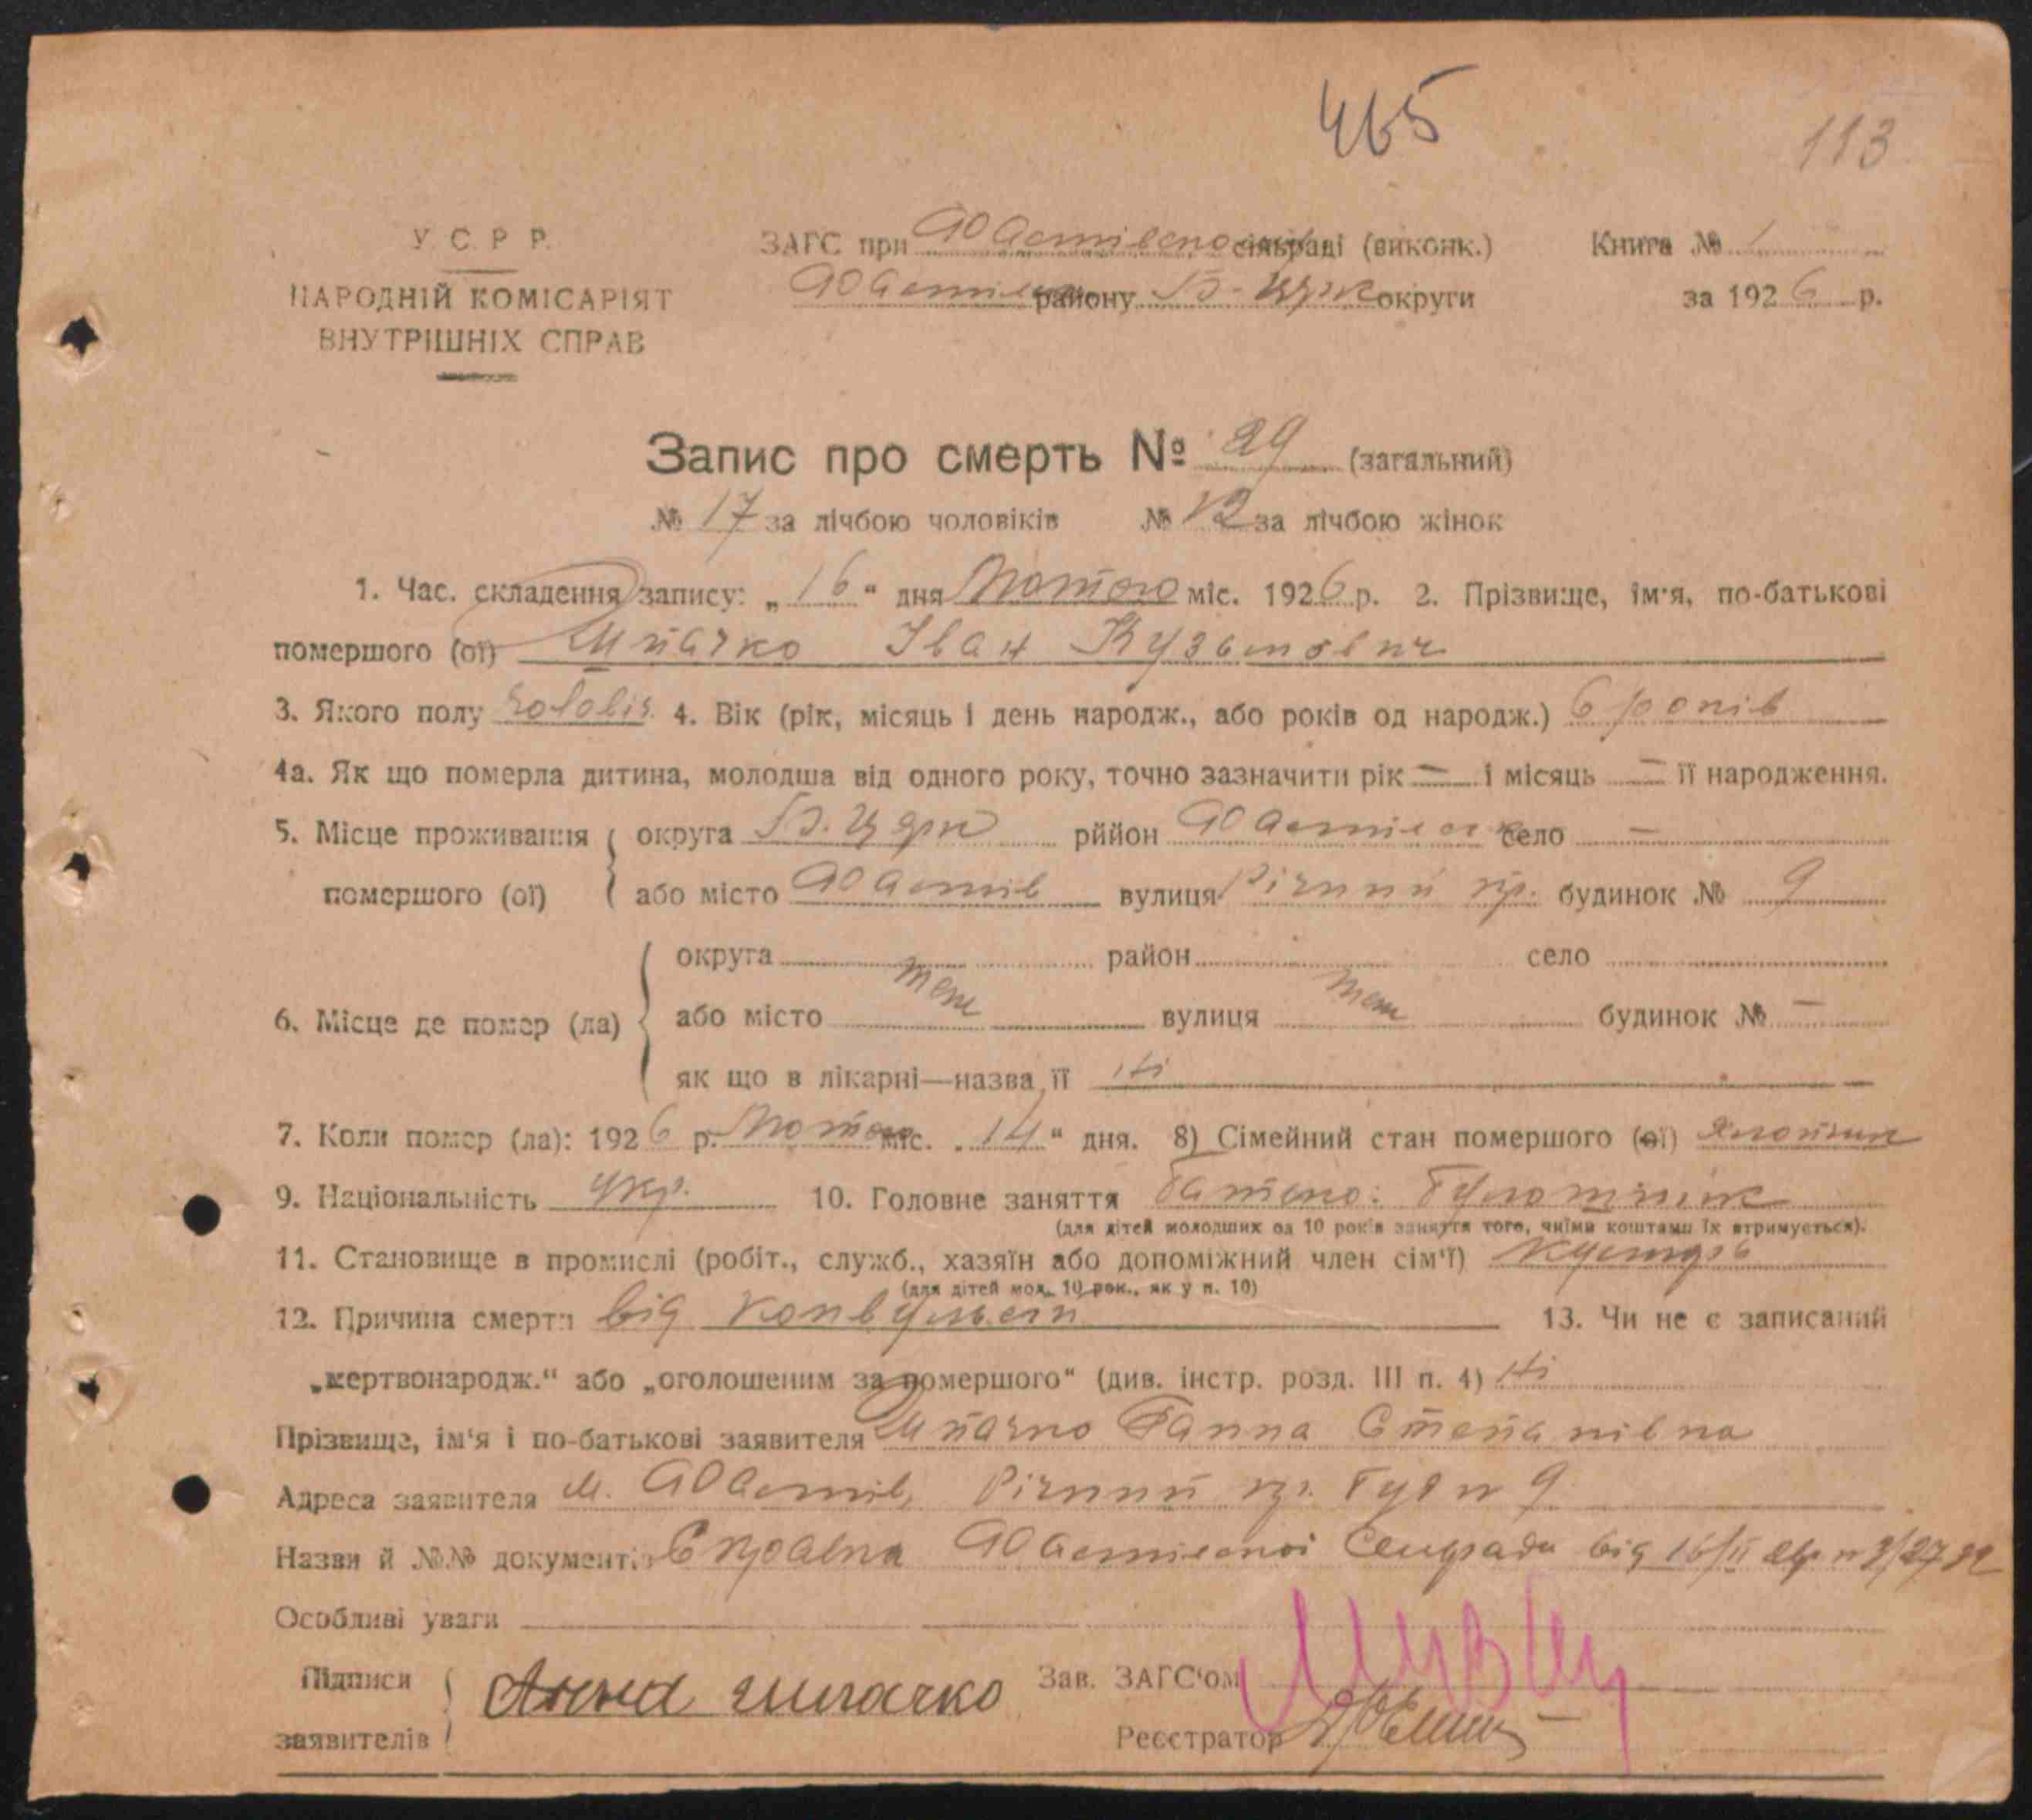 465
113
У. С. Р. Р.
НАРОДНІЙ КОМІСАРІЯТ
ВНУТРІШНІХ СПРАВ
ЗАГС при Фастівсько сільраді (виконк.)
Фастівськ району Б-Црк округи
Книга № 1
за 1926 р.
Запис про смерть № 29 (загальний)
№ 17 за лічбою чоловіків № 12 за лічбою жінок
1. Час. складення запису: „16“ дня Лютого міс. 1926 р. 2. Прізвище, ім'я, по-батькові
помершого (ої) Шпачко Іван Кузьмович
3. Якого полу чоловіч. 4. Вік (рік, місяць і день народж., або років од народж.) 6 років
4а. Як що померла дитина, молодша від одного року, точно зазначити рік — і місяць — її народження.
5. Місце проживання округа Б. Церк рййон Фастівськ село —
помершого (ої) або місто Фастів вулиця Річний пр. будинок № 9
округа район село
6. Місце де помер (ла) або місто теж вулиця теж будинок № —
як що в лікарні—назва її Ні
7. Коли помер (ла): 1926 р. Лютого міс. „14“ дня. 8) Сімейний стан помершого (ої)
9. Національність Укр. 10. Головне заняття батько:
(для дітей молодших од 10 років заняття того, чиїми коштами їх втримується).
11. Становище в промислі (робіт., служб., хазяїн або допоміжний член сім'ї) кустарь
(для дітей мол. 10 рок., як у п. 10)
12. Причина смерти від конвульсіи 13. Чи не є записаний
„мертвонародж.“ або „оголошеним за померш​ого“ (див. інстр. розд. III п. 4) Ні
Прізвище, ім'я і по-батькові заявителя Шпачко Ганна Степанівна
Адреса заявителя м. Фастів, Річний пр. буд № 9
Назви й №№ документів Справка Фастівської Селиради від 16/II
Особливі уваги
Підписи
заявителів
Анна Шпачко
Зав. ЗАГС'ом
Реєстратор